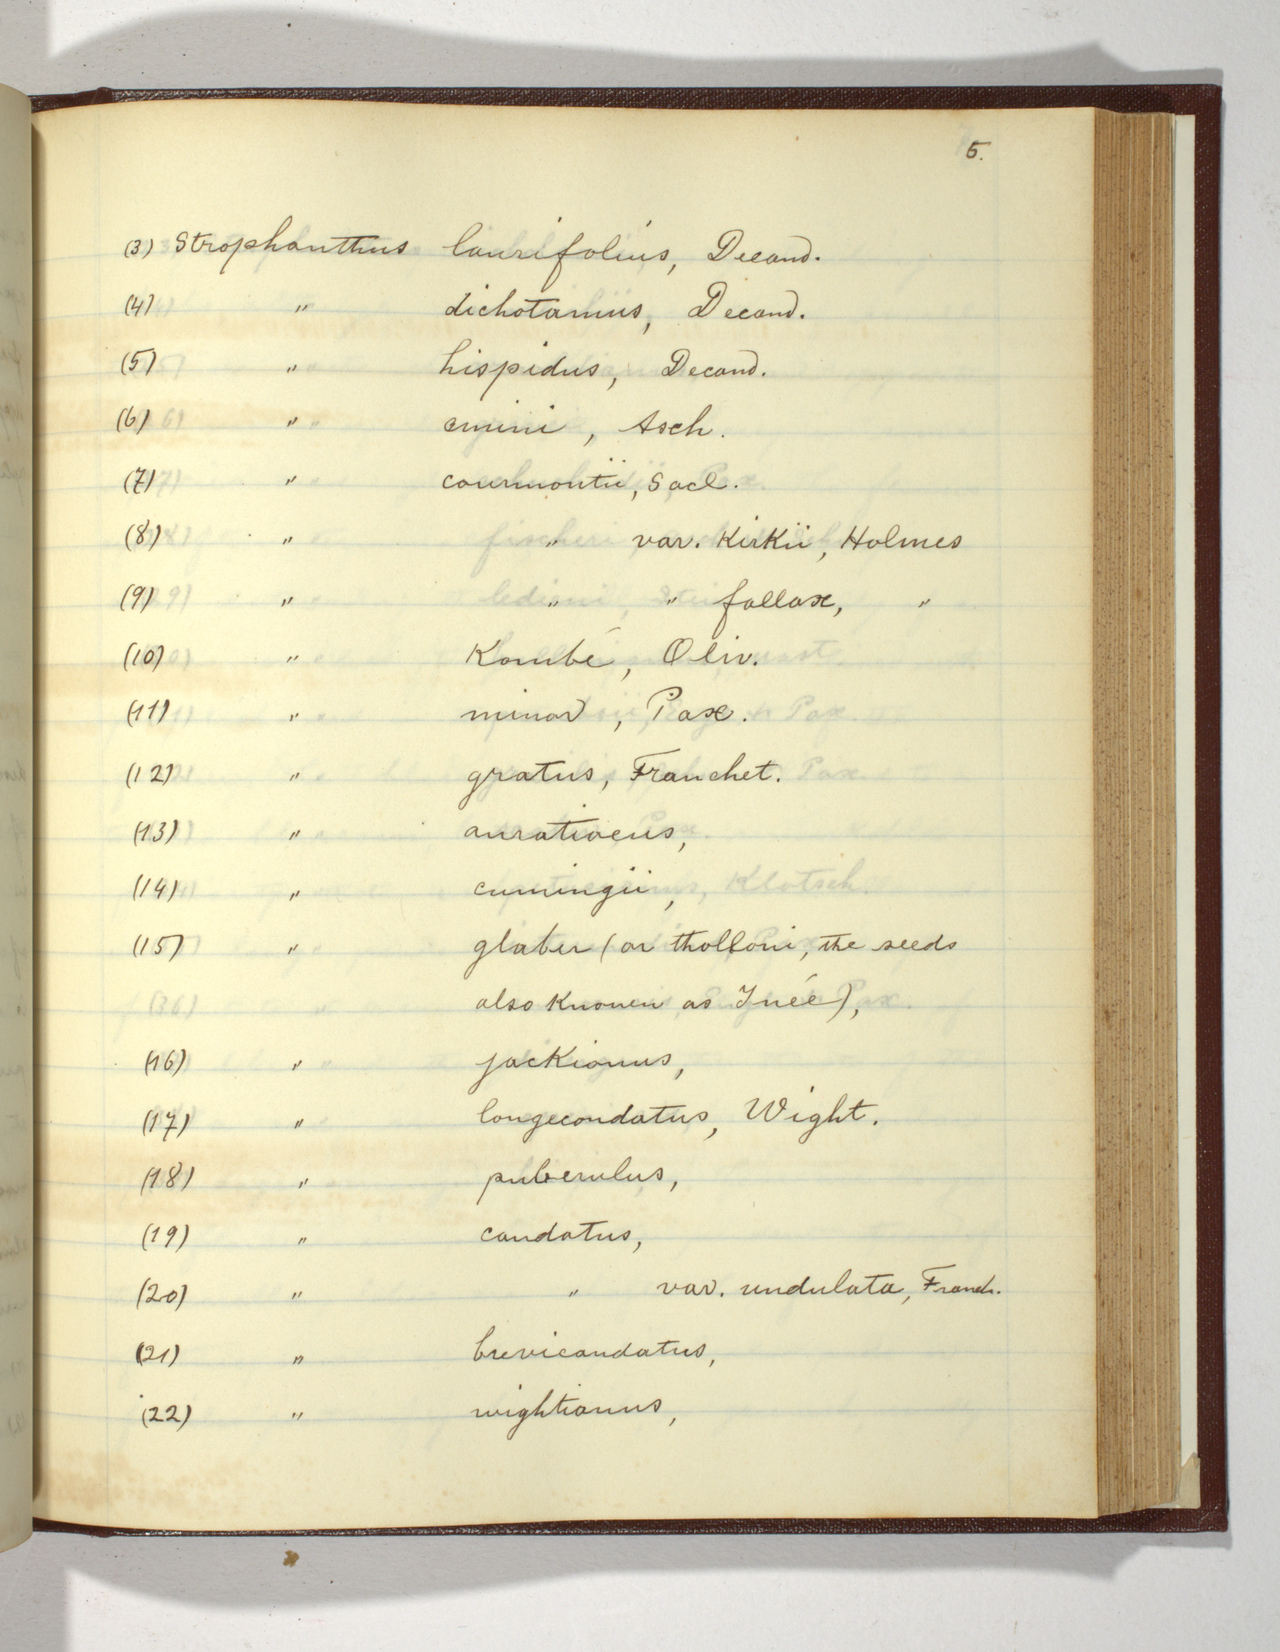 5.
(3) Strophanthus laurifolius, Decand.
(4) " dichotamus, Decand.
(5) " hispidus, Decand.
(6) " emini, Asch.
(7) " courmontii, Sacl.
(8) " " var. Kirkii, Holmes
(9) " " " fallax, "
(10) " Kombé, Oliv.
(11) " minor, Pax.
(12) " gratus, Franchet.
(13) " auratiacus,
(14) " cumingii,
(15) " glaber (or tholloni, the seeds
also known as Inée),
(16) " jackianus,
(17) " longecaudatus, Wight.
(18) " puberulus,
(19) " caudatus,
(20) " " var. undulata, Franch.
(21) " brevicaudatus,
(22) " wightianus,